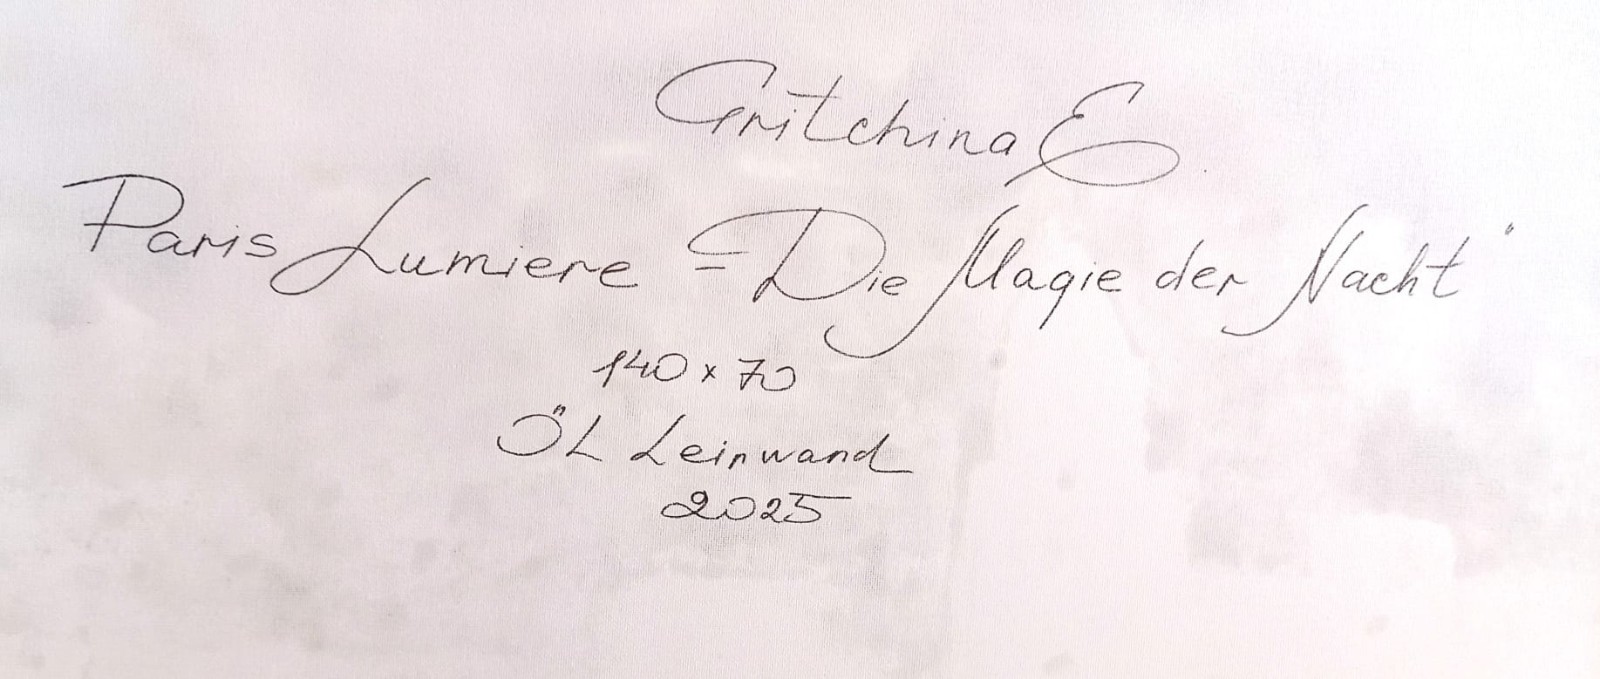 Gritchina E
Paris Lumiere - Die Magie der Nacht"
140 x 70
ÖL Leinwand
2025